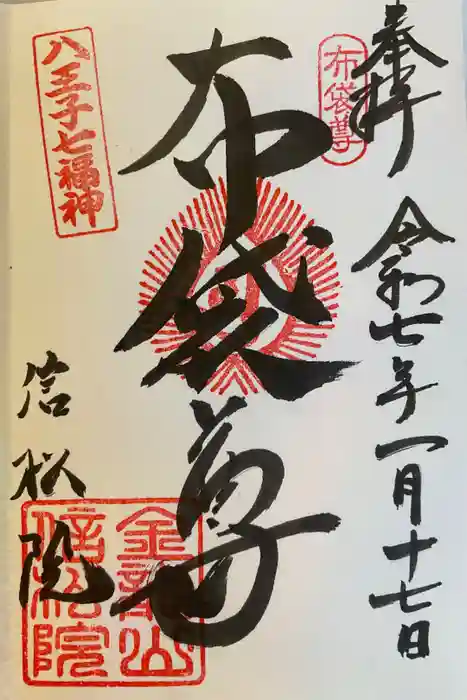 奉拝
令和七年一月十七日
布袋尊
布袋尊
八王子七福神
信松院
金龍山
信松院